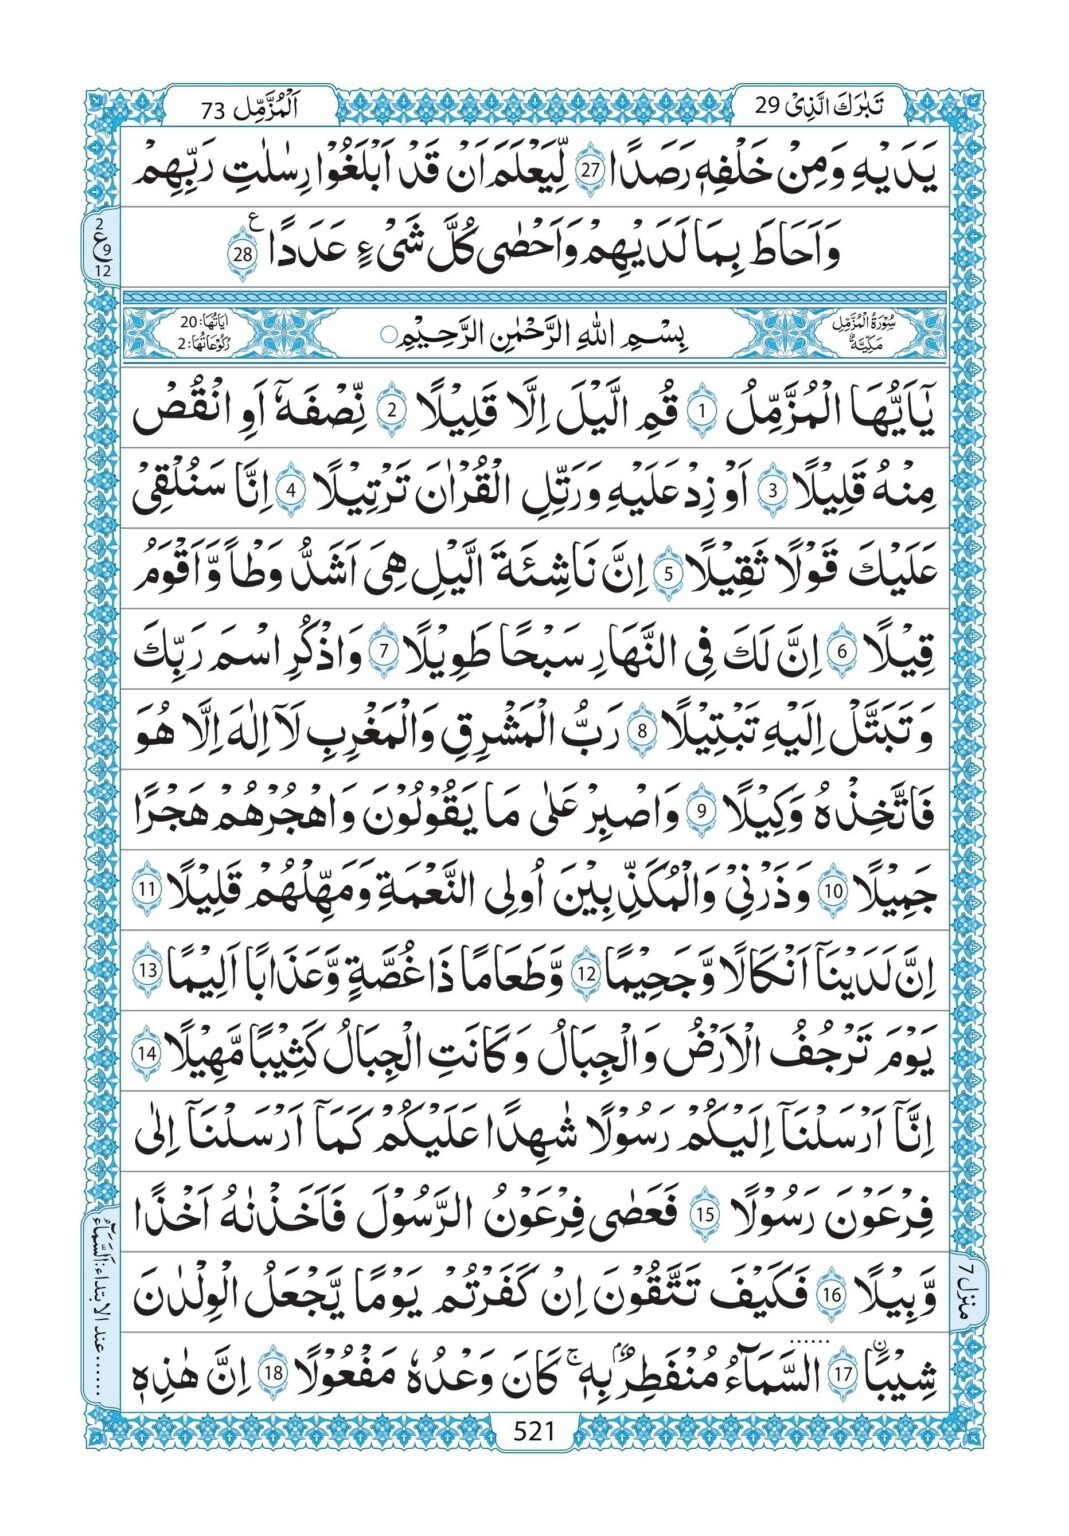 تَبٰرَكَ الَّذِیْ 29
اَلْمُزَّمِّل 73
یَدَیْهِ وَمِنْ خَلْفِهٖ رَصَدًا 27 لِّیَعْلَمَ اَنْ قَدْ اَبْلَغُوْا رِسٰلٰتِ رَبِّهِمْ
وَاَحَاطَ بِمَا لَدَیْهِمْ وَاَحْصٰی كُلَّ شَیْءٍ عَدَدًا 28 ع
2
ع
12
سُوْرَةُ الْمُزَّمِّلِ مَكِّیَّةٌ
بِسْمِ اللهِ الرَّحْمٰنِ الرَّحِیْمِ
اٰیَاتُهَا: 20
رُكُوْعَاتُهَا: 2
یٰۤاَیُّهَا الْمُزَّمِّلُ 1 قُمِ الَّیْلَ اِلَّا قَلِیْلًا 2 نِّصْفَهٗۤ اَوِ انْقُصْ
مِنْهُ قَلِیْلًا 3 اَوْ زِدْ عَلَیْهِ وَرَتِّلِ الْقُرْاٰنَ تَرْتِیْلًا 4 اِنَّا سَنُلْقِیْ
عَلَیْكَ قَوْلًا ثَقِیْلًا 5 اِنَّ نَاشِئَةَ الَّیْلِ هِیَ اَشَدُّ وَطْاً وَّاَقْوَمُ
قِیْلًا 6 اِنَّ لَكَ فِی النَّهَارِ سَبْحًا طَوِیْلًا 7 وَاذْكُرِ اسْمَ رَبِّكَ
وَتَبَتَّلْ اِلَیْهِ تَبْتِیْلًا 8 رَبُّ الْمَشْرِقِ وَالْمَغْرِبِ لَاۤ اِلٰهَ اِلَّا هُوَ
فَاتَّخِذْهُ وَكِیْلًا 9 وَاصْبِرْ عَلٰی مَا یَقُوْلُوْنَ وَاهْجُرْهُمْ هَجْرًا
جَمِیْلًا 10 وَذَرْنِیْ وَالْمُكَذِّبِیْنَ اُولِی النَّعْمَةِ وَمَهِّلْهُمْ قَلِیْلًا 11
اِنَّ لَدَیْنَاۤ اَنْكَالًا وَّجَحِیْمًا 12 وَّطَعَامًا ذَا غُصَّةٍ وَّعَذَابًا اَلِیْمًا 13
یَوْمَ تَرْجُفُ الْاَرْضُ وَالْجِبَالُ وَكَانَتِ الْجِبَالُ كَثِیْبًا مَّهِیْلًا 14
اِنَّاۤ اَرْسَلْنَاۤ اِلَیْكُمْ رَسُوْلًا شٰهِدًا عَلَیْكُمْ كَمَاۤ اَرْسَلْنَاۤ اِلٰی
فِرْعَوْنَ رَسُوْلًا 15 فَعَصٰی فِرْعَوْنُ الرَّسُوْلَ فَاَخَذْنٰهُ اَخْذًا
وَّبِیْلًا 16 فَكَیْفَ تَتَّقُوْنَ اِنْ كَفَرْتُمْ یَوْمًا یَّجْعَلُ الْوِلْدٰنَ
شِیْبًا 17 السَّمَآءُ مُنْفَطِرٌۢ بِهٖ ؕ كَانَ وَعْدُهٗ مَفْعُوْلًا 18 اِنَّ هٰذِهٖ
منزل 7
...... عند الابتداء: اَلسَّمَآءُ
521